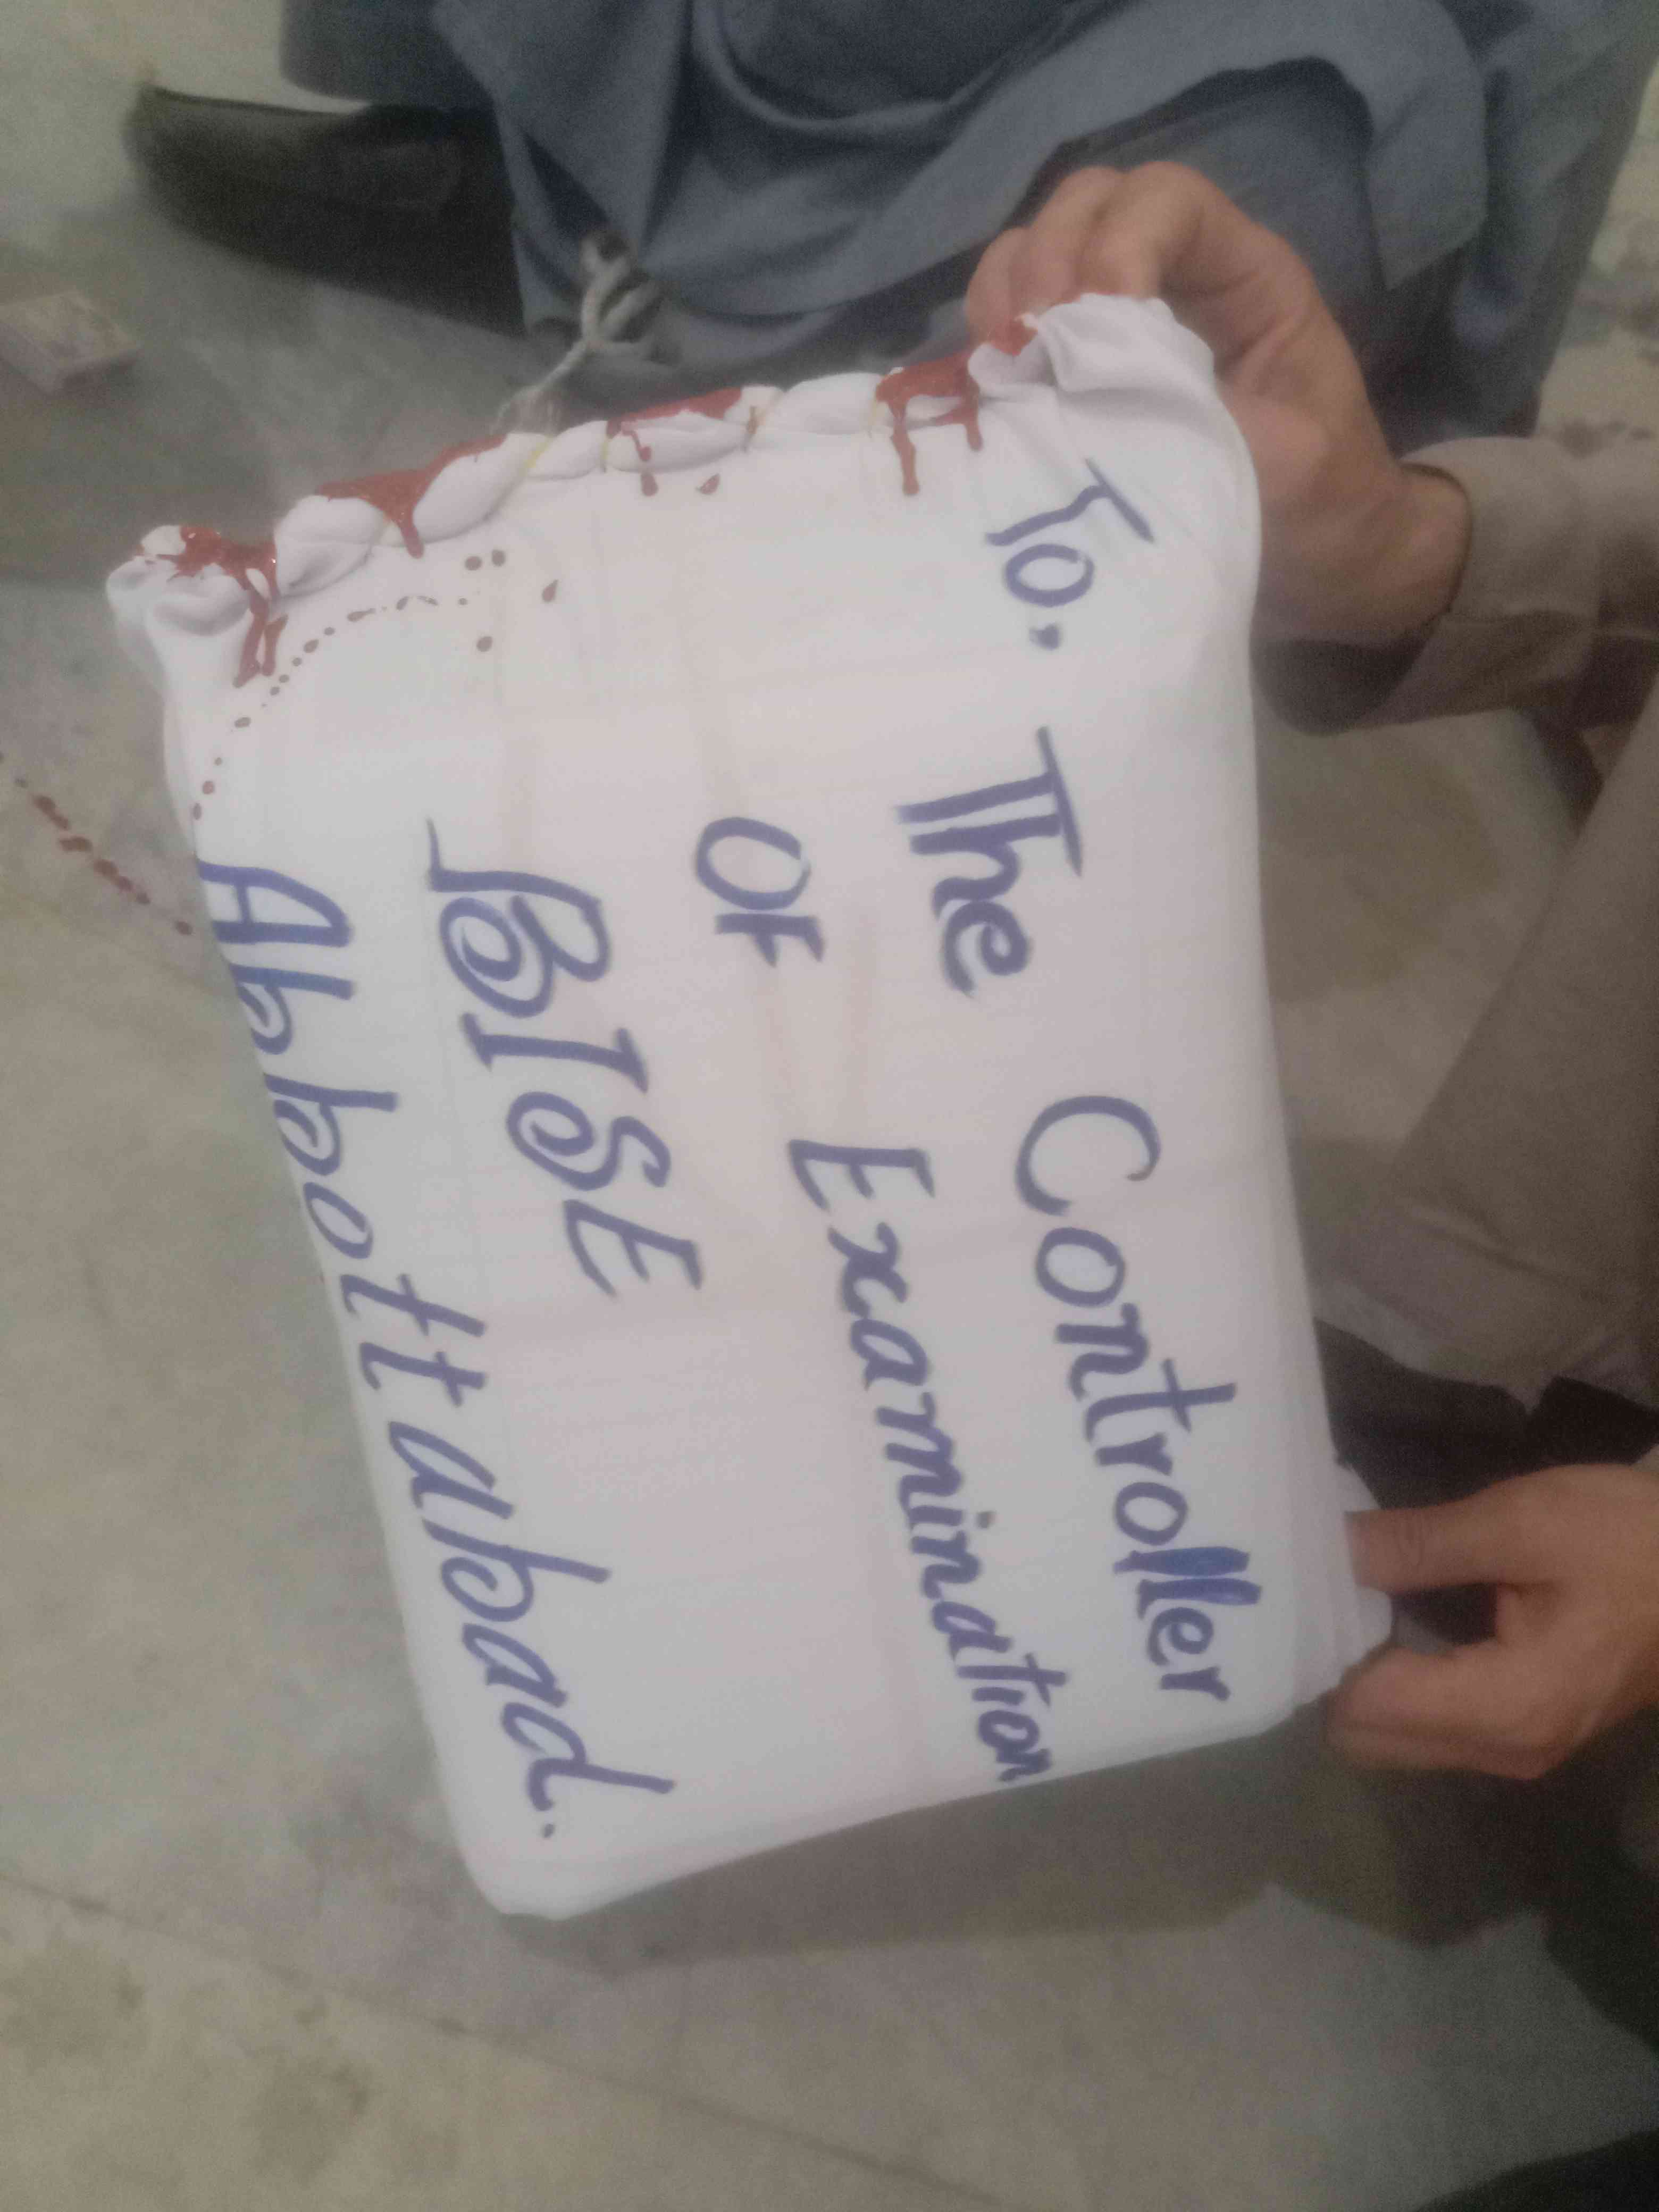 To,
The Controller
OF Examination
BISE
Abbottabad.